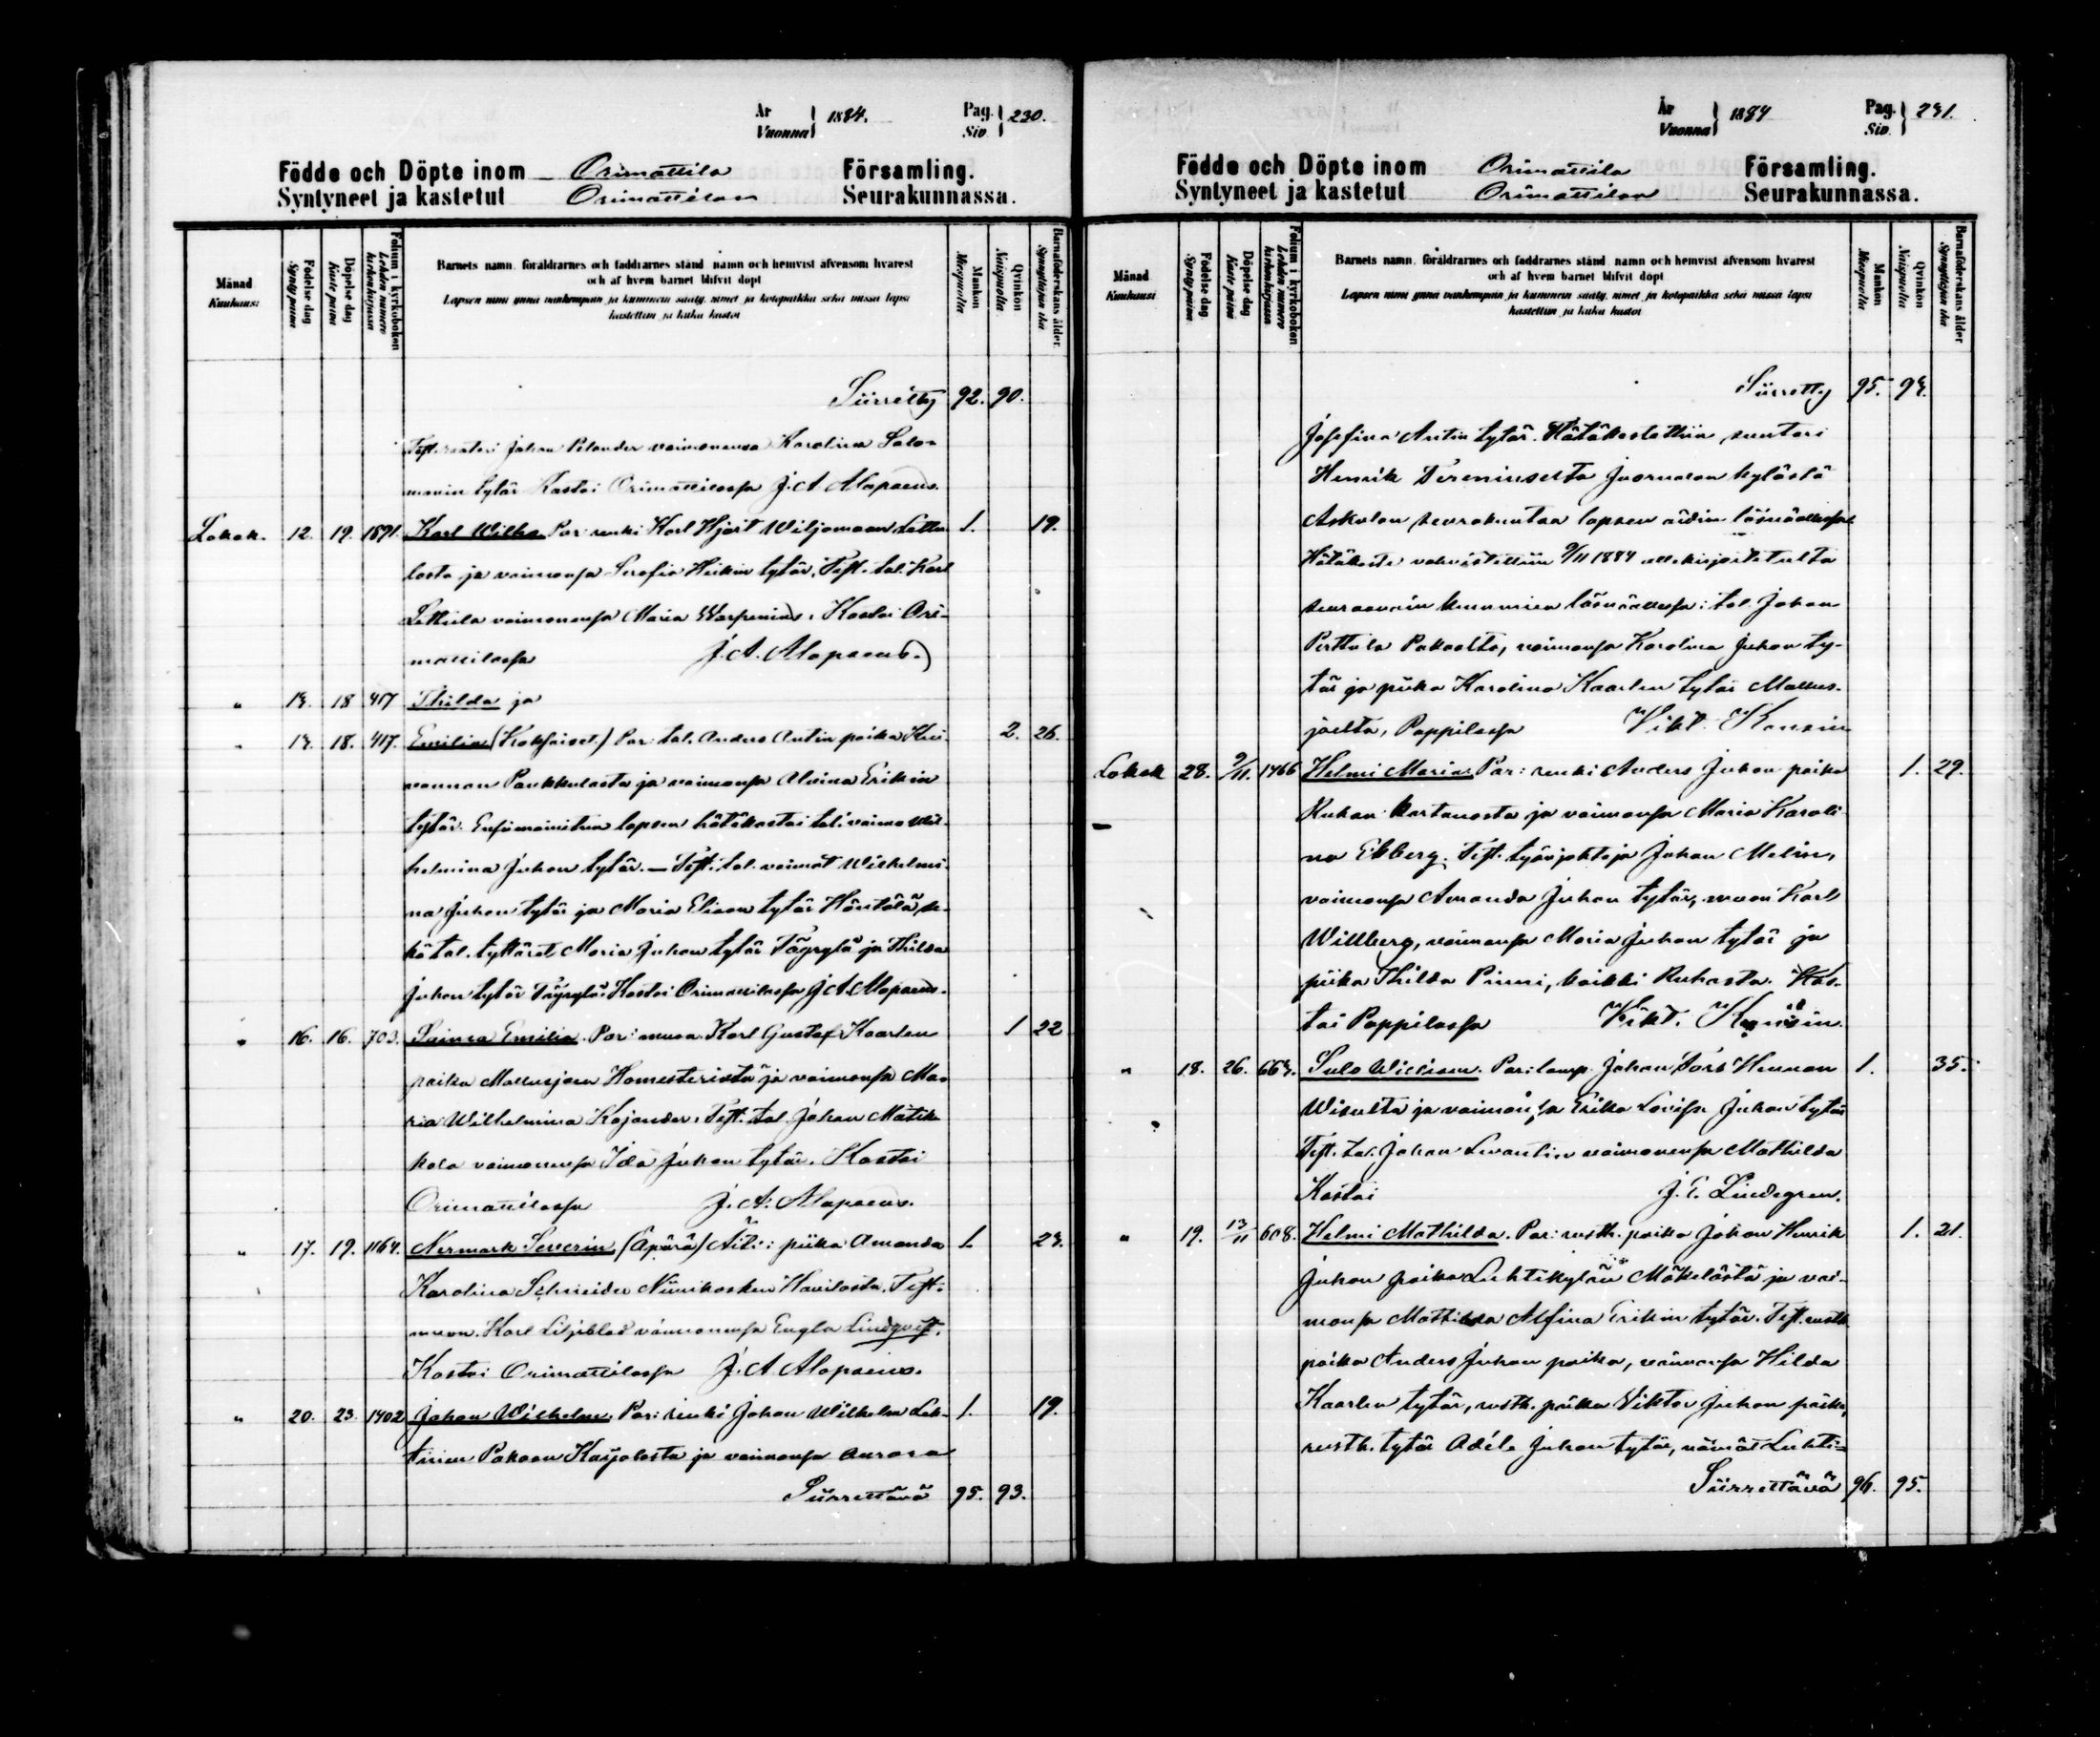 År
Vuonna } 1884. Pag.
Siv. } 230.
Födde och Döpte inom Orimattila Församling.
Syntyneet ja kastetut Orimattilan Seurakunnassa.
Månad
Kuukausi
Födelse dag
Synty päivä
Döpelse dag
Kaste päivä
Folium i kyrkoboken
Lehden numero kirkonkirjassa
Barnets namn, föräldrarnes och faddrarnes stånd, namn och hemvist äfvensom hvarest
och af hvem barnet blifvit döpt
Lapsen nimi ynnä vanhempain ja kummein sääty, nimet ja kotopaikka sekä missä lapsi
kastettiin ja kuka kastoi
Mankön
Miespuolia
Qvinkön
Naispuolia
Barnaföderskans ålder
Synnyttäjän ikä
Siirretty 92. 90.
Test. Johan Pelander vaimonensa Karolina Salo-
monin tytär Kastoi Orimattilassa J. A. Alopaeus.
Lokak. 12. 19. 1891. Karl Wilho. Van: renki Karl Hjärt Wiljamaan Lettu-
lasta ja vaimonsa Serafia Heikin tytär. Test. tal. Karl
Lettula vaimonensa Maria Kastoi Ori-
mattilassa J. A. Alopaeus.
" 14. 18 417 Thilda ja
" 14. 18. 417. Emilia (Kaksoiset.) Van: tal. Anders Antin poika Kui-
vannon Paukkulasta ja vaimonsa Alvina Erikin 2. 26.
tytär. Ensimainitun lapsen hätäkastoi tal. vaimo Wil-
helmina Juhon tytär. — Test. tal. vaimot Wilhelmi-
na Juhon tytär ja Maria Eliaan tytär Häntälä, se-
kä tal. tyttäret Maria Juhon tytär Täyrylä ja Thilda
Juhon tytär Täyrylä. Kastoi Orimattilassa J. A. Alopaeus.
" 16. 16. 703. Saima Emilia. Van: muon. Karl Gustaf Kaarlen 1 22
poika Mallusjoen Homesterista ja vaimonsa Ma-
ria Wilhelmina Kajander. Test. tal. Johan Mattik-
kala vaimonensa Ida Juhon tytär. Kastoi
Orimattilassa J. A. Alopaeus.
" 17. 19. 1164. Nermark Severin. (Äpärä) Äiti: piika Amanda 1. 24.
Karolina Schneider Niinikosken Havilasta. Test.
muon. Karl Liljeblad vaimonensa Engla Lindqvist.
Kastoi Orimattilassa J. A. Alopaeus.
" 20. 23. 1402 Johan Wilhelm. Van: renki Johan Wilhelm Leh- 1. 19.
tinen Pakaan Kaijalasta ja vaimonsa Aurora
Siirrettävä 95. 93.
År
Vuonna } 1884 Pag.
Siv. } 231.
Födde och Döpte inom Orimattila Församling.
Syntyneet ja kastetut Orimattilan Seurakunnassa.
Månad
Kuukausi
Födelse dag
Synty päivä
Döpelse dag
Kaste päivä
Folium i kyrkoboken
Lehden numero kirkonkirjassa
Barnets namn, föräldrarnes och faddrarnes stånd, namn och hemvist äfvensom hvarest
och af hvem barnet blifvit döpt
Lapsen nimi ynnä vanhempain ja kummein sääty, nimet ja kotopaikka sekä missä lapsi
kastettiin ja kuka kastoi
Mankön
Miespuolia
Qvinkön
Naispuolia
Barnaföderskans ålder
Synnyttäjän ikä
Siirretty 95. 93.
Josefina Antin tytär. Hätäkastettiin suutari
Henrik Juornaan kylästä
Askolan seurakuntaa lapsen äidin läsnäollessa.
Hätäkaste vahvistettiin 9/11 1884 allekirjoitetulta
seuraavain kummien läsnäollessa: tal. Johan
Perttula Pakaalta, vaimonsa Karolina Juhon ty-
tär ja piika Karolina Kaarlen tytär Mallus-
joelta, Pappilassa Vikt. Konsin
Lokak 28. 9/11. 1466 Helmi Maria. Van: renki Anders Juhon poika 1. 29.
Ruhan kartanosta ja vaimonsa Maria Karoli-
na Ekberg. Test. työnjohtaja Johan Melin,
vaimonsa Amanda Juhon tytär, muon. Karl
Willberg, vaimonsa Maria Juhon tytär ja
piika Thilda Pinni, kaikki Ruhasta. Kas-
toi Pappilassa Vikt. Konsin.
" 18. 26. 664. Sulo William. Van: lamp. Johan Fors Hennan 1. 35.
ja vaimonsa Erika Lovisa Juhon tytär
Test. tal. Johan vaimonensa Mathilda
Kastoi J. E. Lindegren.
" 19. 13/11 608. Helmi Mathilda. Van: rusth. poika Johan Henrik 1. 21.
Juhon poika Luhtikylän Mäkelästä ja vai-
monsa Mathilda Alfina Erikin tytär. Test. rusth.
poika Anders Juhon poika, vaimonsa Hilda
Kaarlen tytär, rusth. poika Viktor Juhon poika,
rusth. tytär Adéle Juhon tytär, nämät Luhti-
Siirrettävä 96. 95.